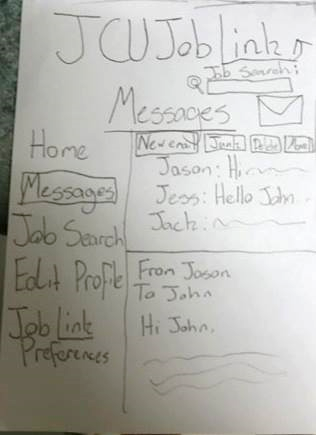 JCU Job Link
Job Search:
Messages
Home
Messages
Job Search
Edit Profile
Job Link
Preferences
New email Junk Delete Move
Jason: Hi
Jess: Hello John
Jack:
From Jason
To John
Hi John,